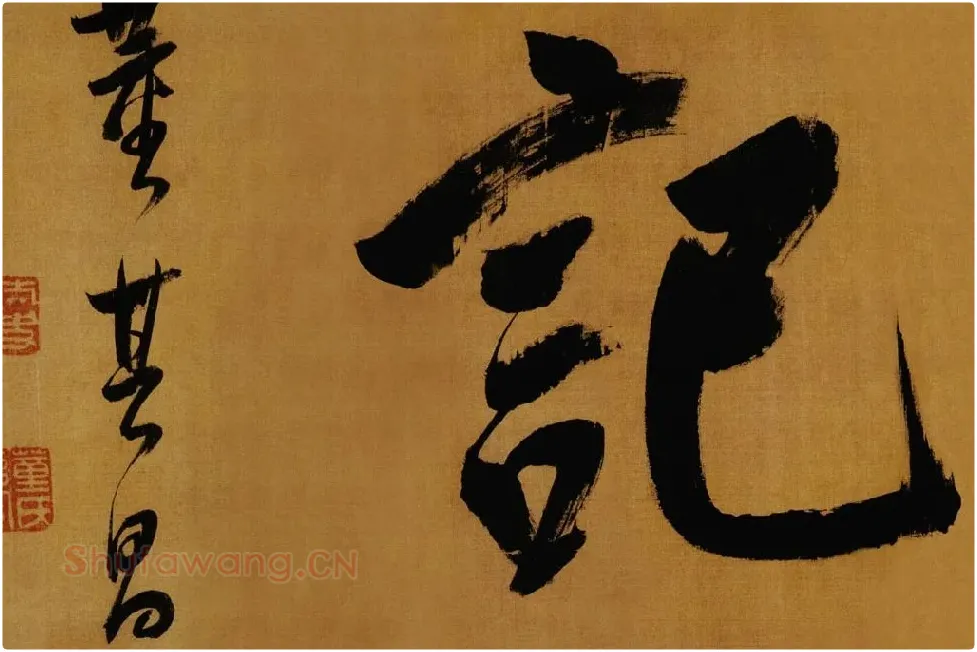 記
董其昌
Shufawang.CN